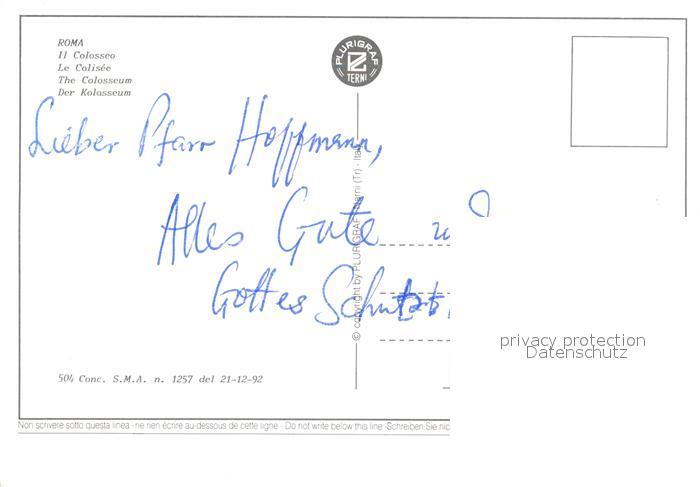 ROMA
Il Colosseo
Le Colisée
The Colosseum
Der Kolosseum
PLURIGRAF
TERNI
Lieber Pfarr Hoffmann,
Alles Gute
Gottes Schutz
© copyright by PLURIGRAF
privacy protection
Datenschutz
504 Conc. S.M.A. n. 1257 del 21-12-92
Non scrivere sotto questa linea - ne rien écrire au-dessous de cette ligne - Do not write below this line - Schreiben Sie